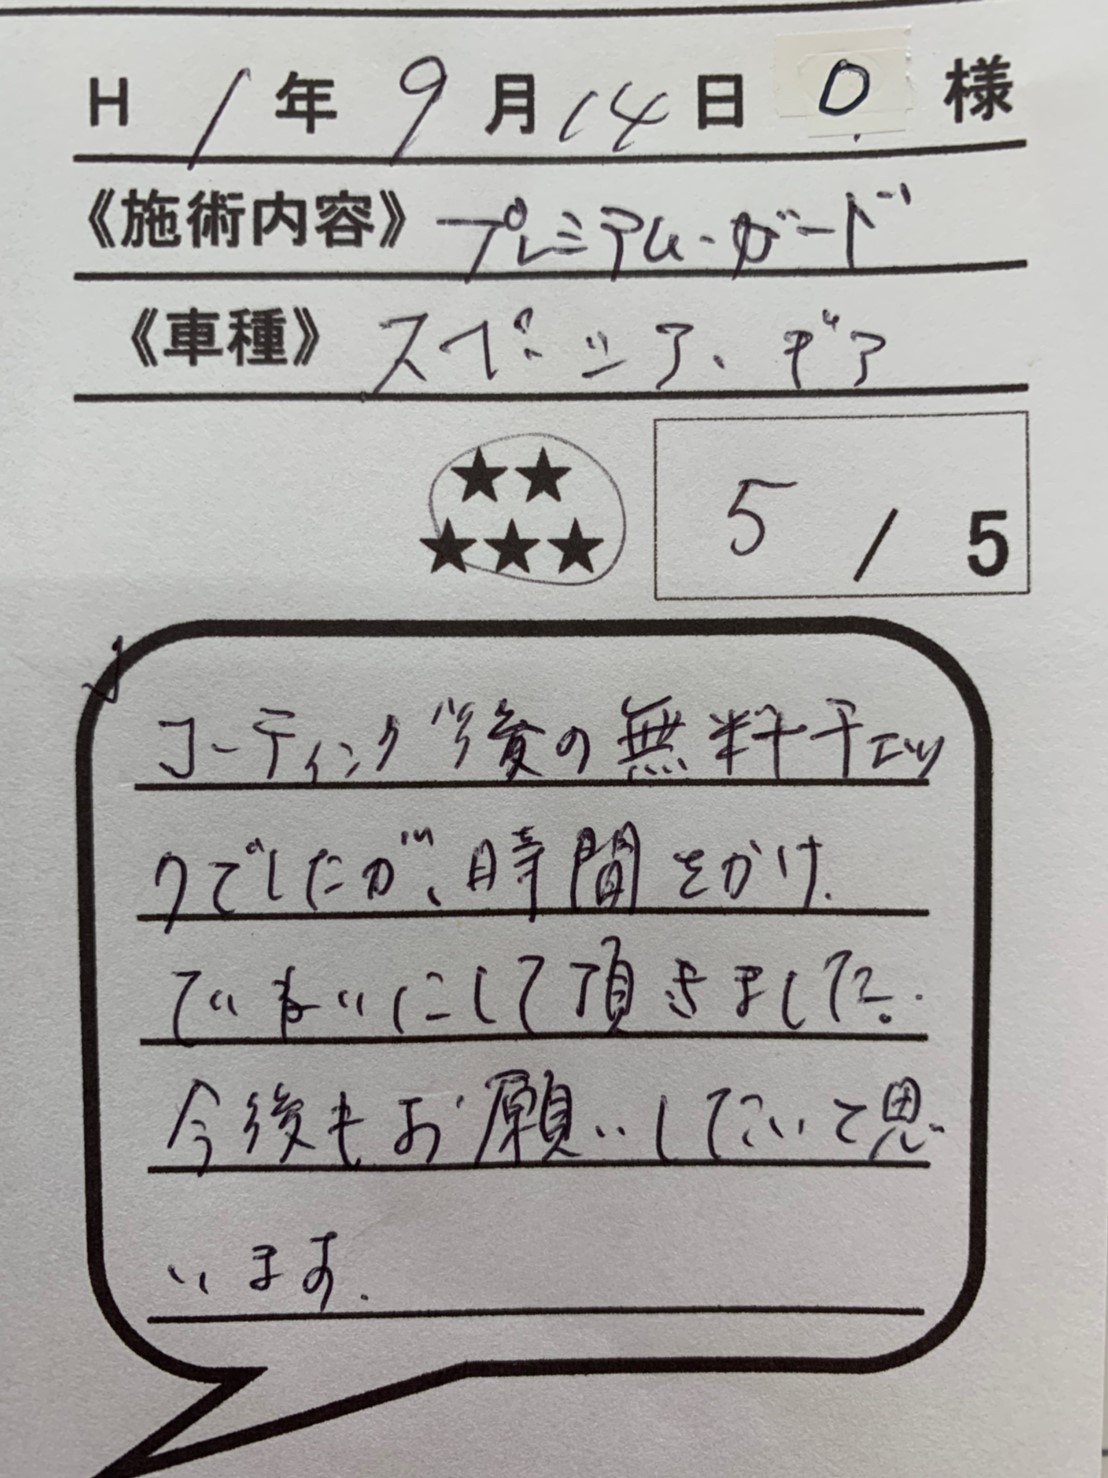 H 1年 9月14日 O 様
《施術内容》 プレミアム・ガード
《車種》 スペーシア、ギア
★★
★★★
5 / 5
コーティング後の無料チェッ
クでしたが、時間をかけ、
ていねいにして頂きました。
今後もお願いしたいと思
います.